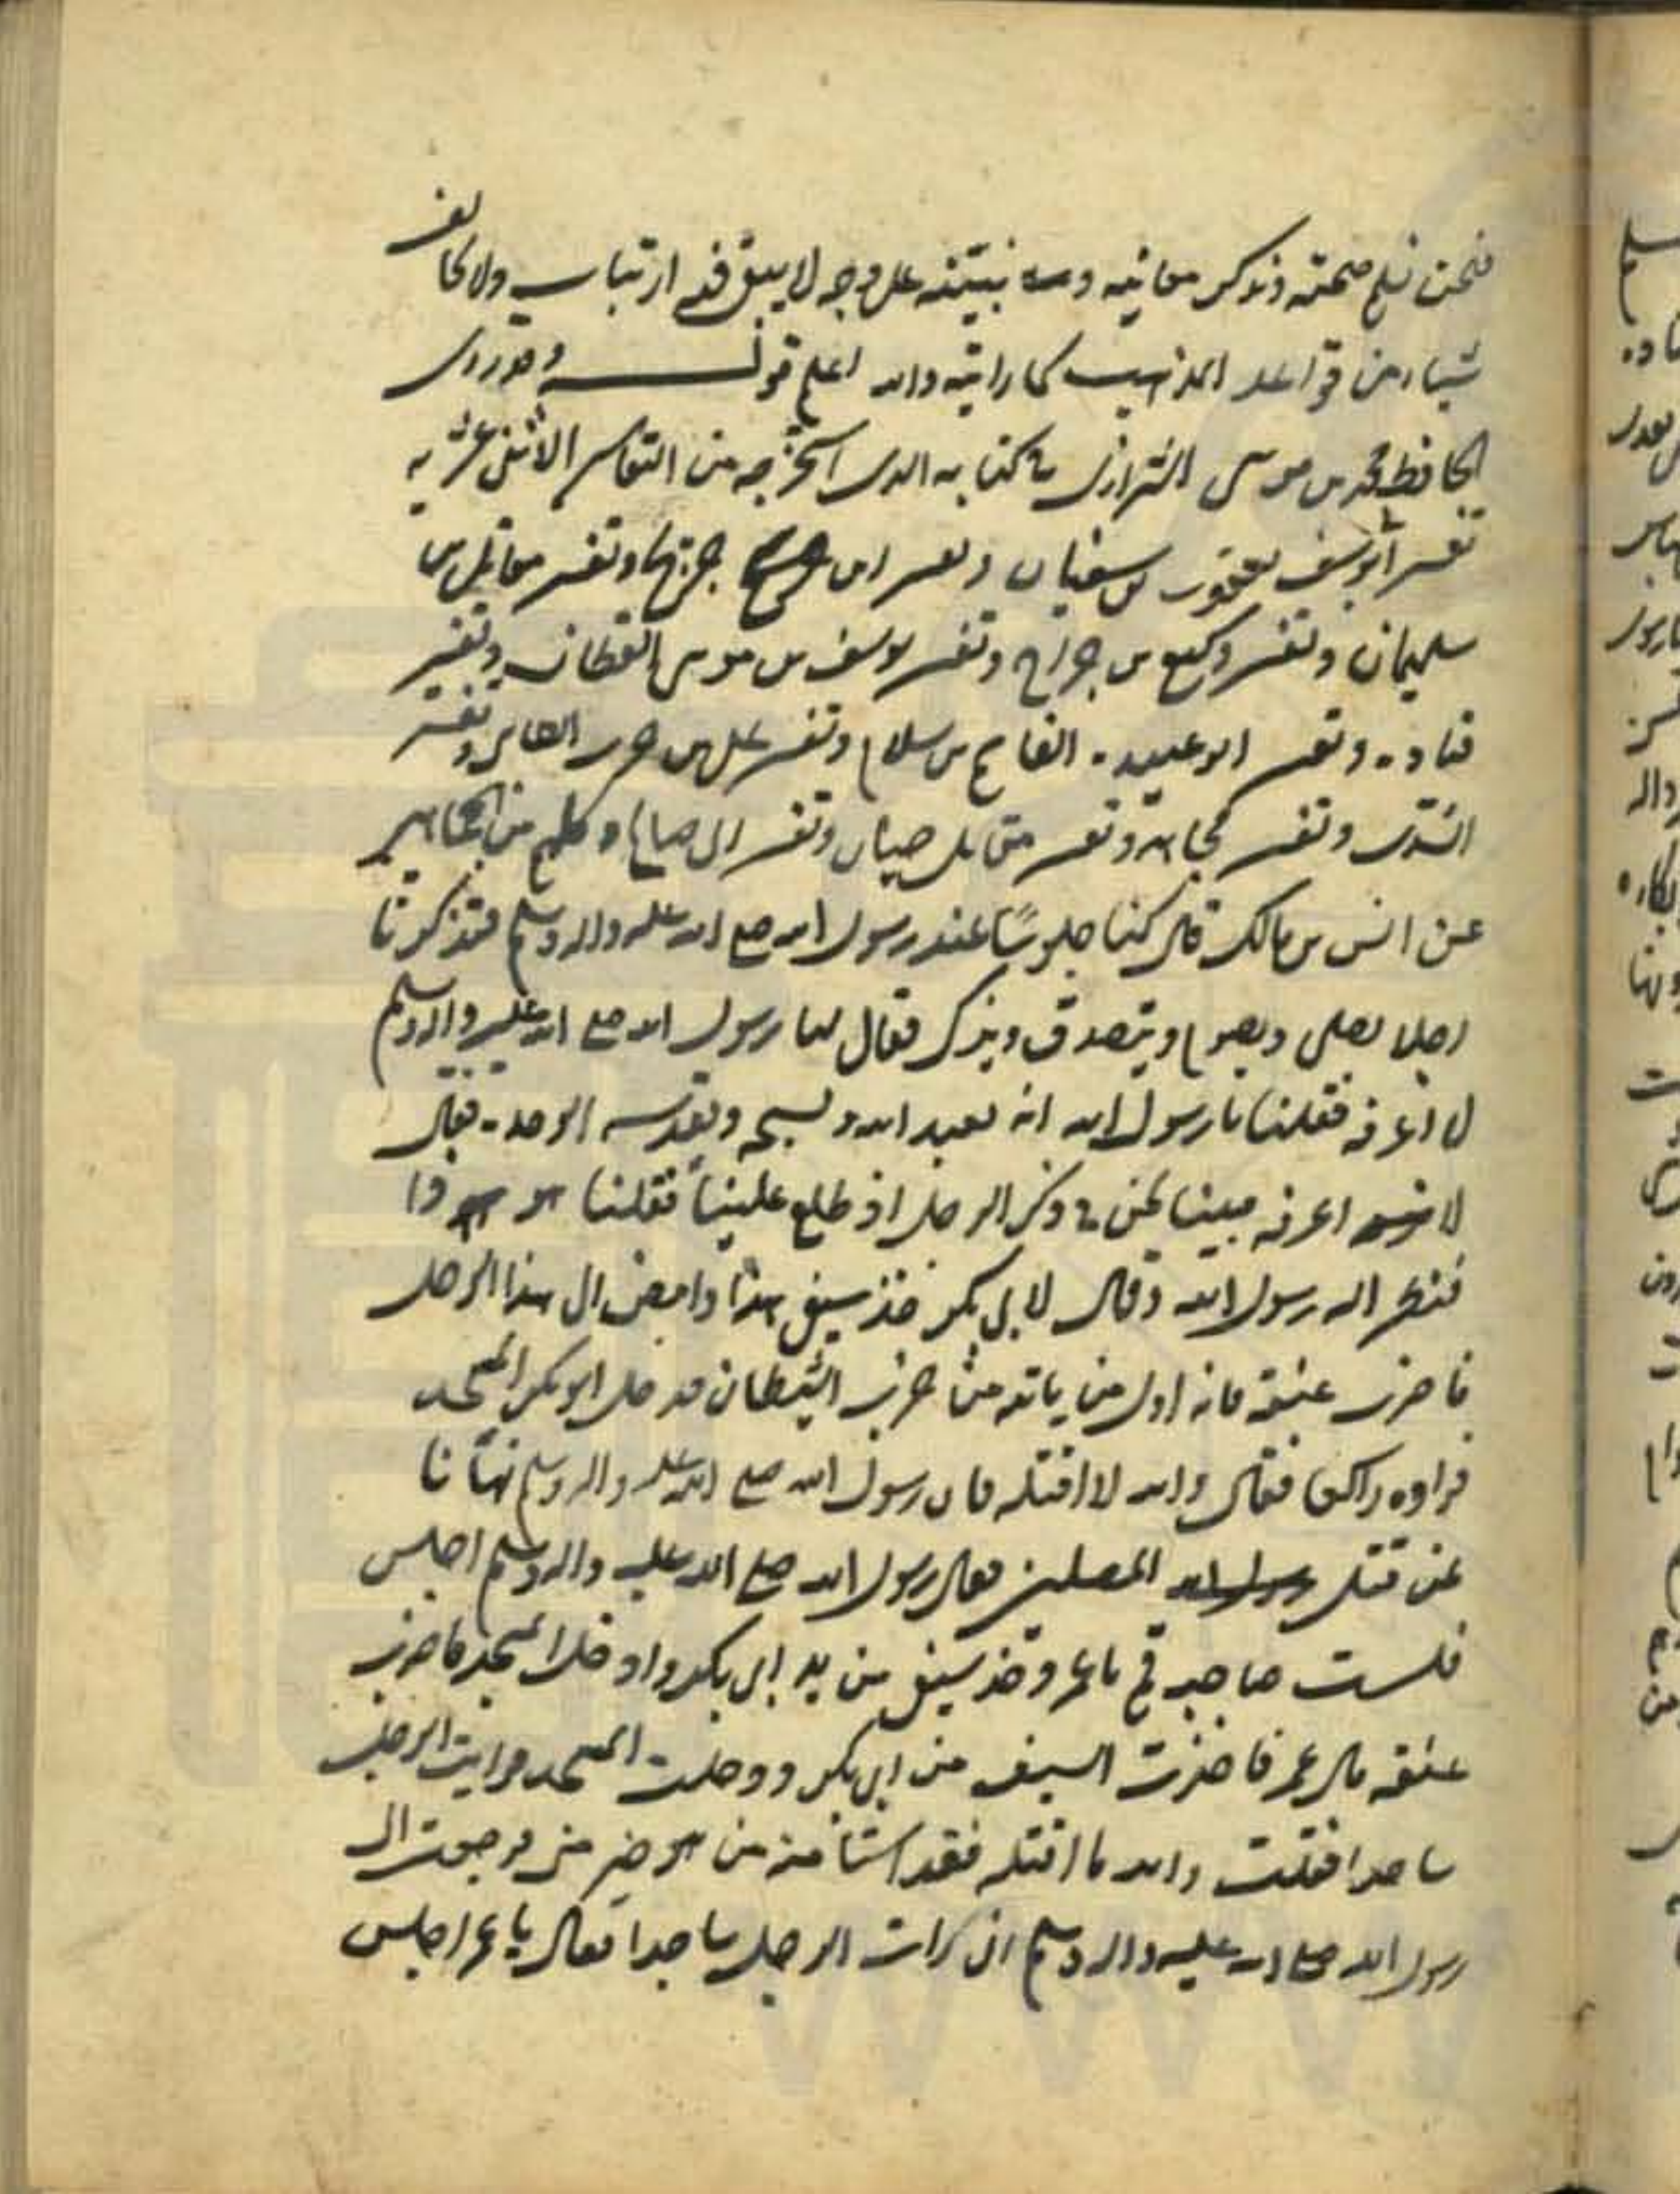 فنحن نسلم صحته ونذكر معانيه ونبينه على وجه لا يبقى فيه ارتياب ولا يخالف
شيئا من قواعد المذهب كما رايته والله اعلم قوله وقد روى
الحافظ محمد بن موسى الشيرازى في كتابه الذى استخرجه من التفاسير الاثنى عشريه
تفسير ابو يوسف يعقوب بن سفيان وتفسير ابن جريح وتفسير مقاتل بن
سليمان وتفسير وكيع بن جراح وتفسير يوسف بن موسى القطان وتفسير
قتاده وتفسير ابو عبيده القاسم بن سلام وتفسير على بن حرب الطائى وتفسير
السدى وتفسير مجاهد وتفسير مقاتل بن حيان وتفسير ابى صالح وكلهم من الجماهير
عن انس بن مالك قال كنا جلوسًا عند رسول الله صلى الله عليه واله وسلم فتذكرنا
رجلا يصلى ويصوم ويتصدق ويذكر فقال لنا رسول الله صلى الله عليه واله وسلم
لا اعرفه فقلنا يا رسول الله انه يعبد الله ويسبحه ويقدسه ويوحده فقال
لا اعرفه فبينا نحن في ذكر الرجل اذ طلع علينا فقلنا هو ذا
فنظر اليه رسول الله وقال لابى بكر خذ سيفى هذا وامض الى هذا الرجل
فاضرب عنقه فانه اول من ياته من حزب الشيطان فدخل ابو بكر المسجد
فراوه راكعا فقال والله لا اقتله فان رسول الله صلى الله عليه واله وسلم نهانا
عن قتل المصلين فقال رسول الله صلى الله عليه واله وسلم اجلس
فلست صاحبه قم يا عمر وخذ سيفى من يد ابى بكر وادخل المسجد فاضرب
عنقه قال عمر فاخذت السيف من ابى بكر ودخلت المسجد فرايت الرجل
ساجدا فقلت والله ما اقتله فقد استامنه من هو خير منى فرجعت الى
رسول الله صلى الله عليه واله وسلم انى رايت الرجل ساجدا فقال يا عمر اجلس